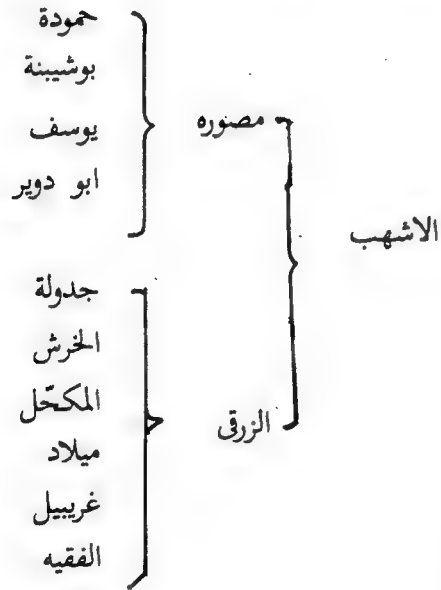 الاشهب
مصوره
حمودة
بوشيبنة
يوسف
ابو دوير
الزرقى
جدولة
الخرش
المكحّل
ميلاد
غريبيل
الفقيه